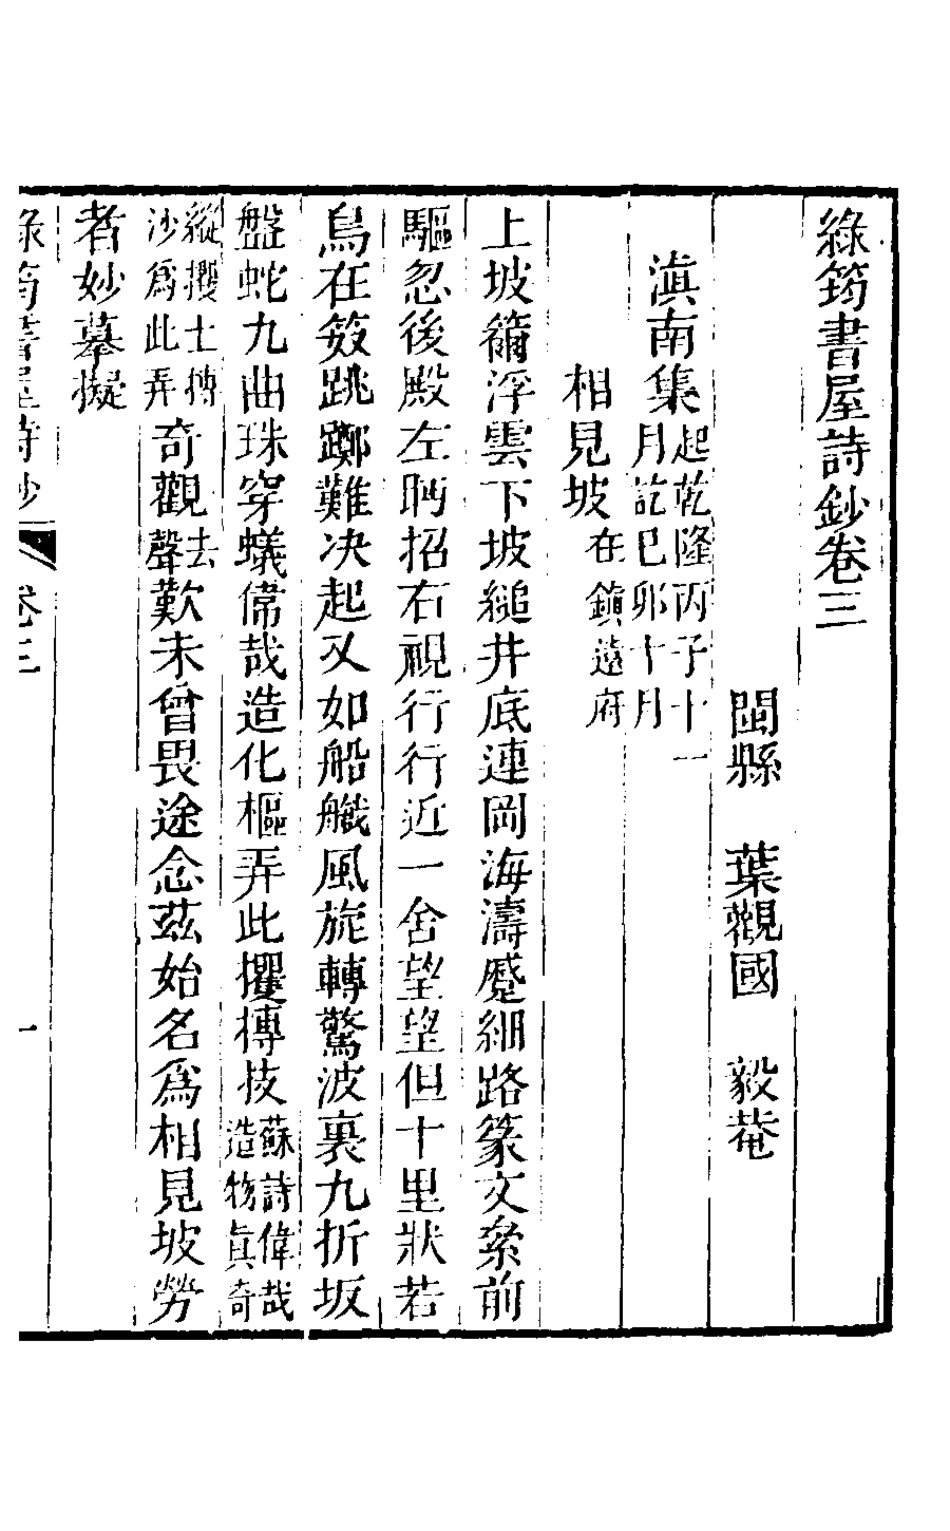 綠筠書屋詩鈔卷三
閩縣 葉觀國 毅菴
滇南集起乾隆丙子十一月訖己卯十月
相見坡在鎮遠府
上坡籋浮雲下坡縋井底連岡海濤蹙細路篆文縈前
驅忽後殿左眄招右視行行近一舍望望但十里狀若
鳥在笯跳躑難決起又如船艤風旋轉驚波裏九折坂
盤蛇九曲珠穿蟻偉哉造化樞弄此攫摶技蘇詩偉哉造物眞奇
縱攫土摶沙爲此弄奇觀去聲歎未曾畏途念茲始名爲相見坡勞
者妙摹擬
綠筠書屋詩鈔 卷三 一